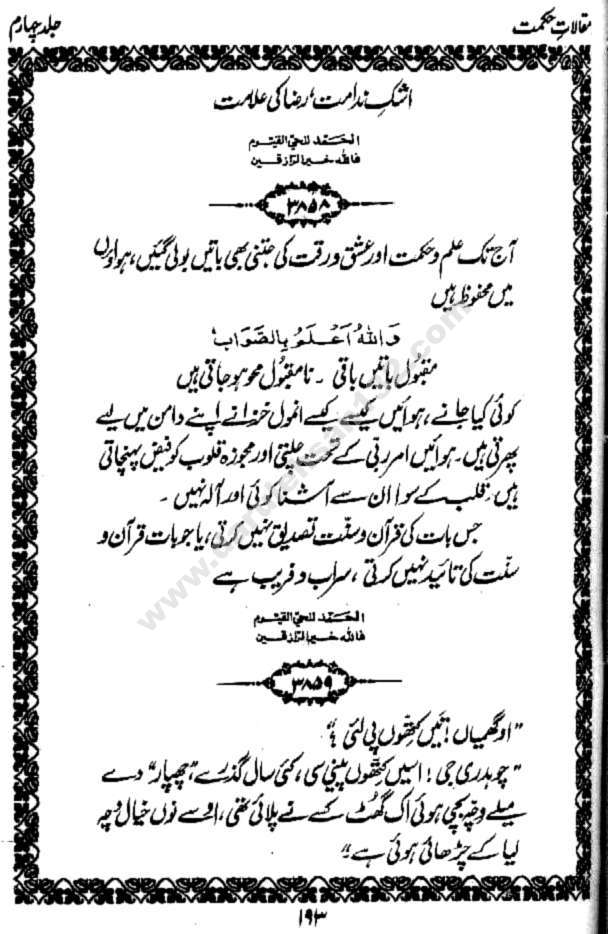 مقالاتِ حکمت
جلد چہارم
اشکِ ندامت، رضا کی علامت
الحَمد للحیّ القیّوم
فالله خیر الرّازقین
۳۸۵۸
آج تک علم و حکمت اور عشق و رقت کی جتنی بھی باتیں بولی گئیں، ہواؤں
میں محفوظ ہیں
وَاللهُ اَعْلَمُ بِالصَّوَاب،
مقبُول باتیں باقی ۔ نا مقبُول محو ہو جاتی ہیں
کوئی کیا جانے، ہوائیں کیسے کیسے انمول خزانے اپنے دامن میں لیے
پھرتی ہیں۔ ہوائیں امرِ ربّی کے تحت چلتی اور مجوزہ قلوب کو فیض پہنچاتی
ہیں، قلب کے سوا ان سے آشنا کوئی اور آلہ نہیں ۔
جس بات کی قرآن و سنّت تصدیق نہیں کرتی، یا جو بات قرآن و
سنّت کی تائید نہیں کرتی ، سراب و فریب ہے
الحَمد للحیّ القیّوم
فالله خیر الرّازقین
۳۸۵۹
"او گھمیاں! تیَں کتھّوں پی لئی ؟"
"چوہدری جی! اسیں کتھّوں پینی سی، کئی سال گذرے، "چھپار" دے
میلے وچہ بچی ہوئی اک گھُٹ کسے نے پلائی تھی، اوسے نوں خیال وچہ
لیا کے چڑھائی ہوئی ہے"
۱۹۳
www.darulehsan142.com